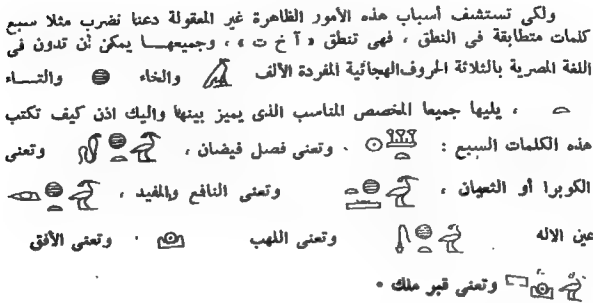 ولكي تستشف أسباب هذه الأمور الظاهرة غير المعقولة دعنا نضرب مثلا سبع
كلمات متطابقة في النطق ، فهي تنطق « آ خ ت » ، وجميعهـــا يمكن أن تدون في
اللغة المصرية بالثلاثة الحروف الهجائية المفردة الألف والخاء والتـــاء
، يليها جميعا المخصص المناسب الذى يميز بينها واليك اذن كيف تكتب
هذه الكلمات السبع : . وتعنى فصل فيضان ، وتعنى
الكوبرا أو الثعبان ، وتعنى النافع والمفيد ،
عين الاله وتعنى اللهب . وتعنى الأفق
وتعنى قبر ملك .